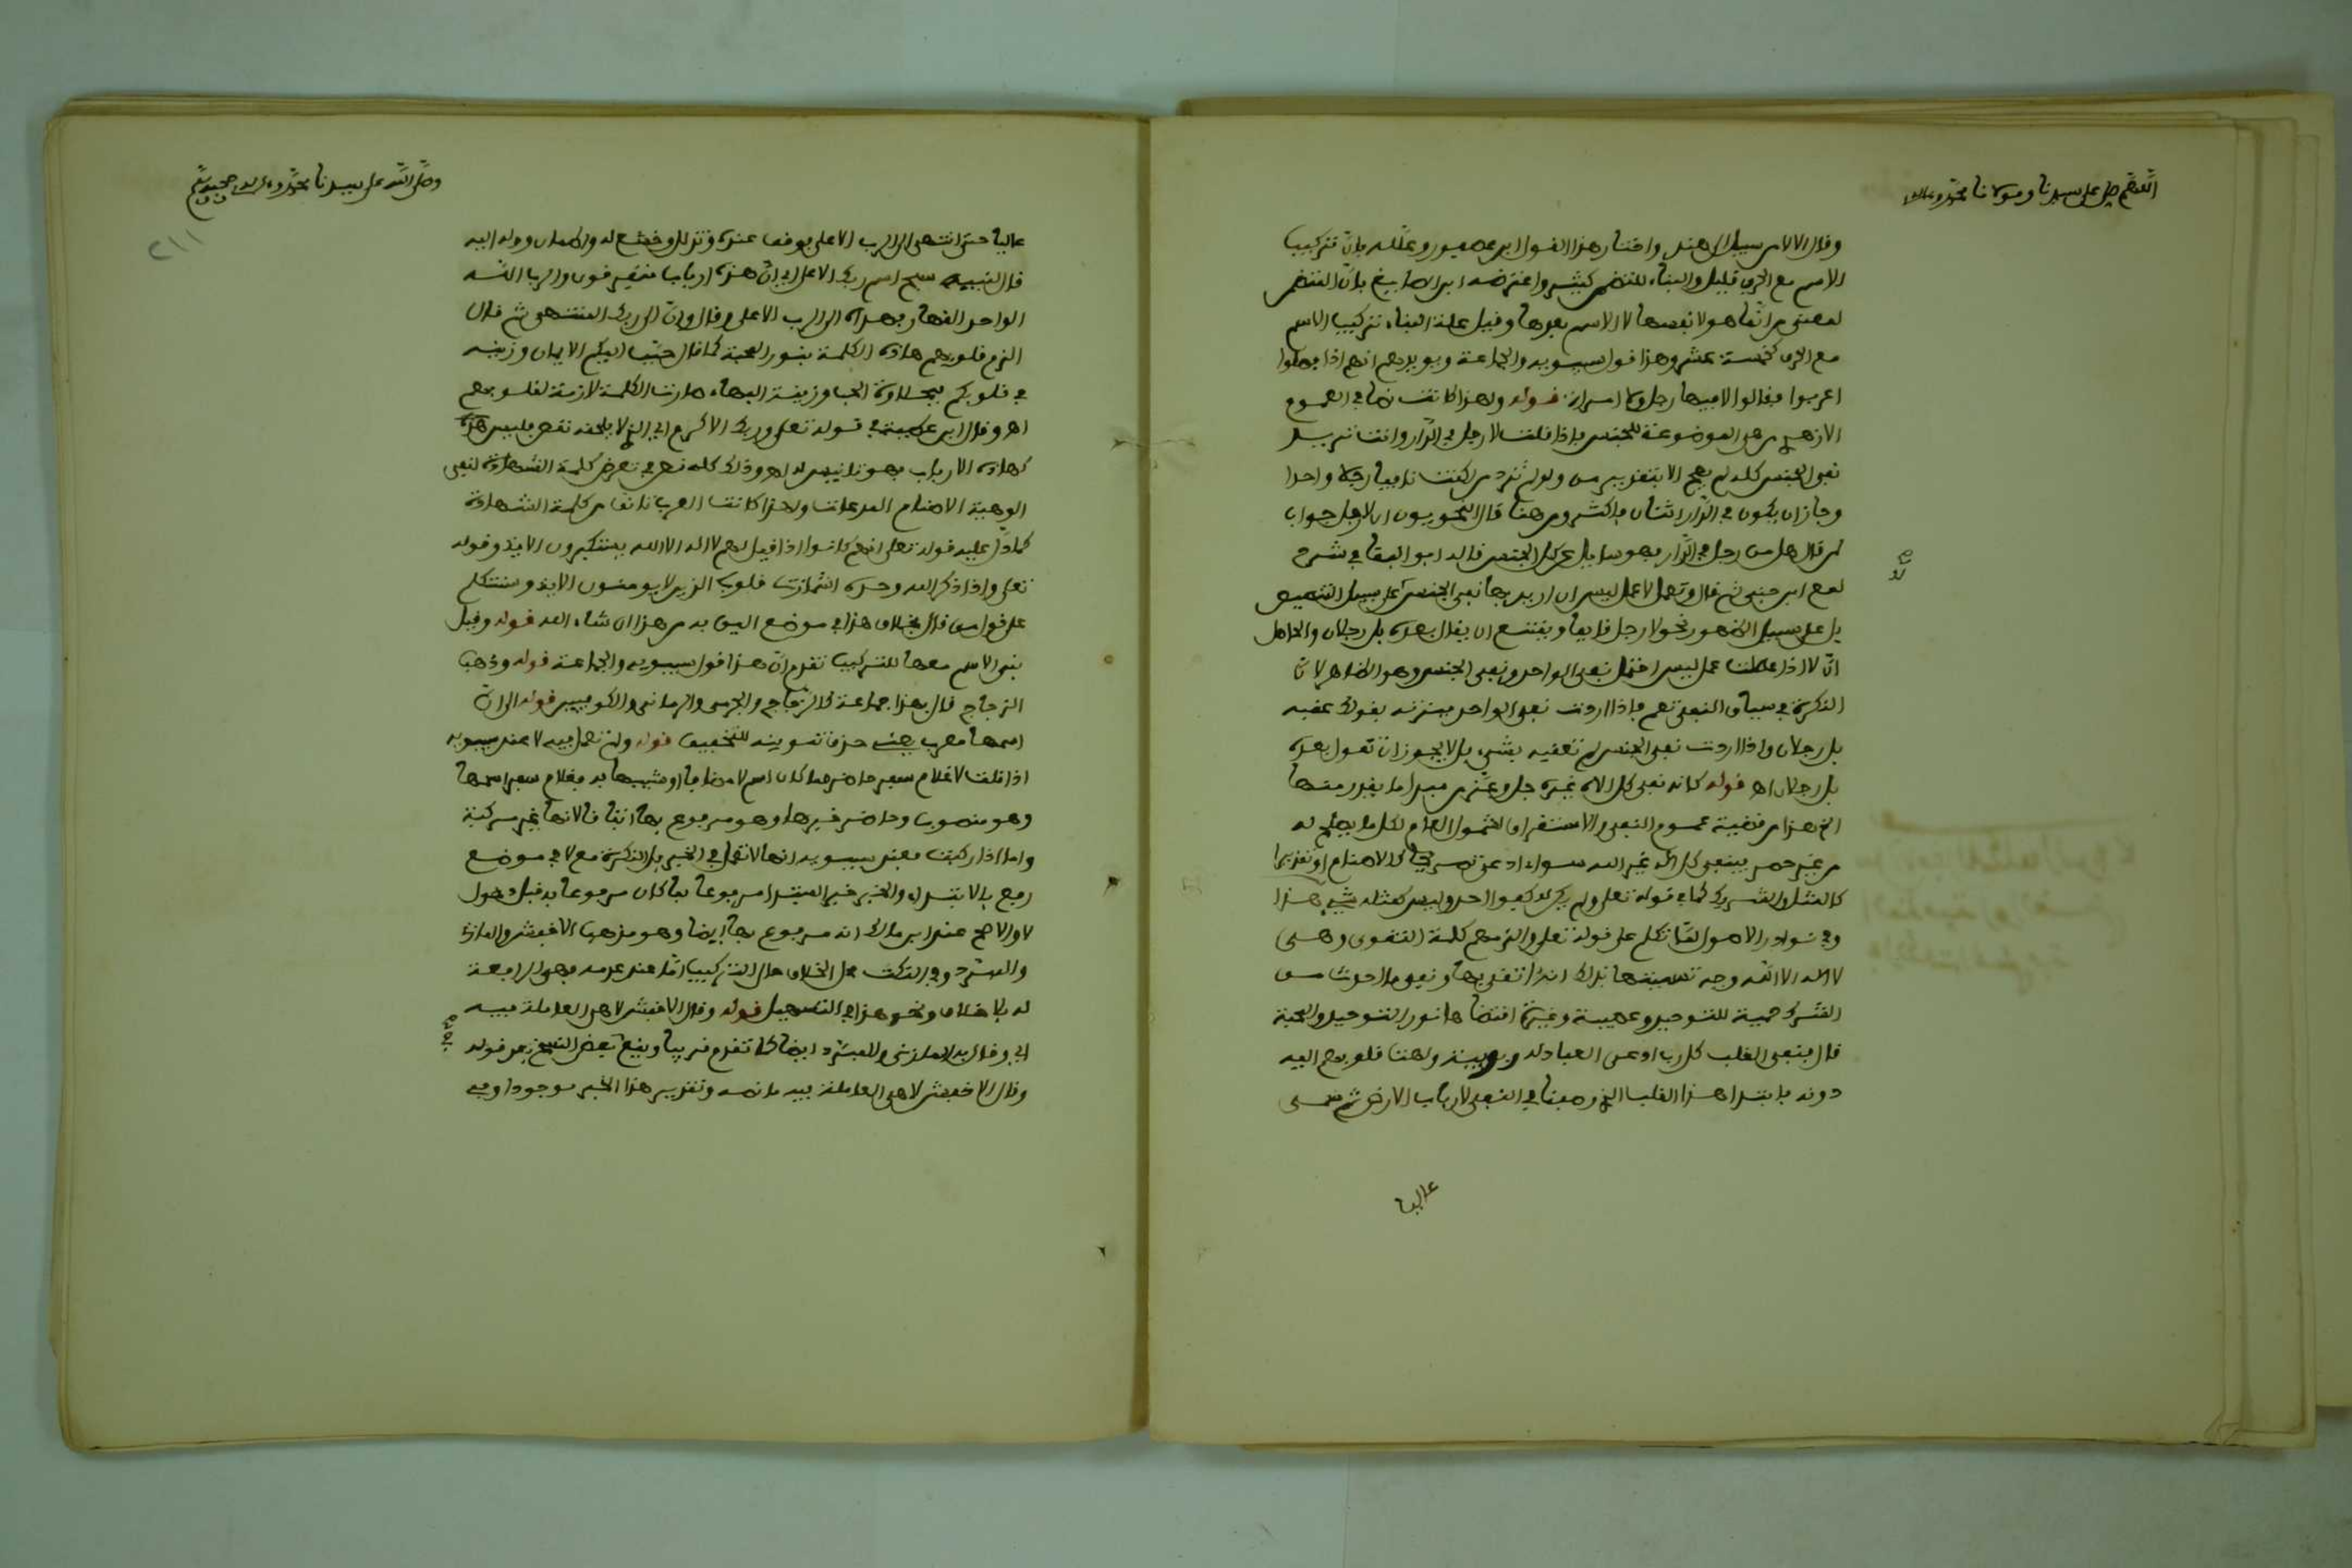 اللهم صل على سيدنا ومولانا محمد وعلى اله
وقال الا لا من سبيل الى هند واختار هذا القول ابن عصفور وعلله بان تركيب
الاسم مع الحرف قليل والبناء للتضمن كثير واعترضه ابن الضائع بان المتضمن
لمعنى من انما هو لا نفسها لا الاسم بعدها وقيل علة البناء تركيب الاسم
مع الحرف كخمسة عشر وهذا قول سيبويه والجماعة ويويدهم انهم اذا فصلوا
اعربوا فقالوا لا فيها رجل ولا امراة قوله ولهذا كانت نصا في العموم
لا من هي الموضوعة للجنس فاذا قلت لا رجل في الدار وانت تريد
نفي الجنس كله لم يصح الا بتقدير من ولو لم ترد من لكنت نافيا رجلا واحدا
وجاز ان يكون في الدار اثنان فاكثر ومن هنا قال النحويون ان لا رجل جواب
لمن قال هل من رجل في الدار فهو سايل عن كل الجنس قاله ابو البقا في شرح
لمع ابن جني ثم قال وتعمل لا عمل ليس ان اريد بها نفي الجنس لا على سبيل التنصيص
بل على سبيل الظهور نحو لا رجل قايما ويمتنع ان يقال بعده بل رجلان والحاصل
ان لا اذا عملت عمل ليس احتمل نفي الواحد ونفي الجنس وهو الظاهر لان
النكرة في سياق النفي تعم فاذا اردت نفي الواحد ميزته بقولك عقبه
بل رجلان واذا اردت نفي الجنس لم تعقبه بشيء بل لا يجوز ان تقول بعده
بل رجلان اهـ قوله كانه نفي كل اله غيره جل وعز من مبدا ما يقدر منها
الخ هذا من قضية عموم النفي والاستغراق لشمول العام لكل ما يصلح له
من غير حصر فينتفي كل اله غير الله سواء ادعي تصريحا كالاصنام او تقديرا
كالمثل والشريك كما في قوله تعلى ولم يكن له كفوا احد وليس كمثله شيء هذا
وفي نوادر الاصول لما تكلم على قوله تعلى والزمهم كلمة التقوى وهي
لا اله الا الله وجه تسميتها بذلك انه اتقى بها ونفى ما احدث من
الشرك حمية للتوحيد وعصبية وغيرة اقتضاها نور التوحيد والمحبة
قال فنفى القلب كل رب ادعى العباد له ربوبية ولهت قلوبهم اليه
دونه فابتدا هذا القلب الذي وصفنا في النفي لارباب الارض ثم سمى
عاليا
وصلى الله على سيدنا محمد وعلى اله وصحبه وسلم
٢١١
عاليا حتى انتهى الى الرب الاعلى فوقف عنده وتذلل وخشع له واطمان ووله اليه
قال لنبيه سبح اسم ربك الاعلى اي ان هذه ارباب متفرقون والرب الله
الواحد القهار فهداه الى الرب الاعلى وقال وان الى ربك المنتهى ثم قال
الزم قلوبهم هاذه الكلمة بنور المحبة كما قال حبب اليكم الايمان وزينه
في قلوبكم فبحلاوة الحب وزينة البهاء صارت الكلمة لازمة لقلوبهم
اهـ وقال ابن عطية في قوله تعلى وربك الاكرم اي الذي لا يلحقه نقص فليس هذه
كهاذه الارباب فهو تانيس له اهـ وذلك كله نص في تعرض كلمة الشهادة لنفي
الوهية الاصنام المدعاة ولهذا كانت العرب تانف من كلمة الشهادة
كما دل عليه قوله تعلى انهم كانوا اذا قيل لهم لا اله الا الله يستكبرون الاية وقوله
تعلى واذا ذكر الله وحده اشمازت قلوب الذين لا يومنون الاية وسنتكلم
على قول من قال بخلاف هذا في موضع اليق به من هذا ان شاء الله قوله وقيل
بني الاسم معها للتركيب تقدم ان هذا قول سيبويه والجماعة قوله وذهب
الزجاج قال بهذا جماعة كالزجاج والجرمي والرماني والكوفيين قوله الى ان
اسمها معرب يعني حذف تنوينه للتخفيف قوله ولم تعمل فيه لا عند سيبويه
اذا قلت لا غلام سفر حاضر مما كان اسم لا مضافا او شبيها به فغلام سفر اسمها
وهو منصوب وحاضر خبرها وهو مرفوع بها اتفاقا لانها غير مركبة
واما اذا ركبت فعند سيبويه انها لا تعمل في الخبر بل النكرة مع لا في موضع
رفع بالابتداء والخبر خبر المبتدا مرفوعا بما كان مرفوعا به قبل دخول
لا والاصح عند ابن مالك انه مرفوع بها ايضا وهو مذهب الاخفش والمازني
والمبرد وفي النكت محل الخلاف حال التركيب اما عند عدمه فهي الرافعة
له بلا خلاف ونحو هذا في التسهيل قوله وقال الاخفش لا هي العاملة فيه
اي وقال به المازني والمبرد ايضا كما تقدم قريبا ويقع في بعض النسخ بعد قوله
وقال الاخفش لا هي العاملة فيه ما نصه وتقدير هذا الخبر موجود او في